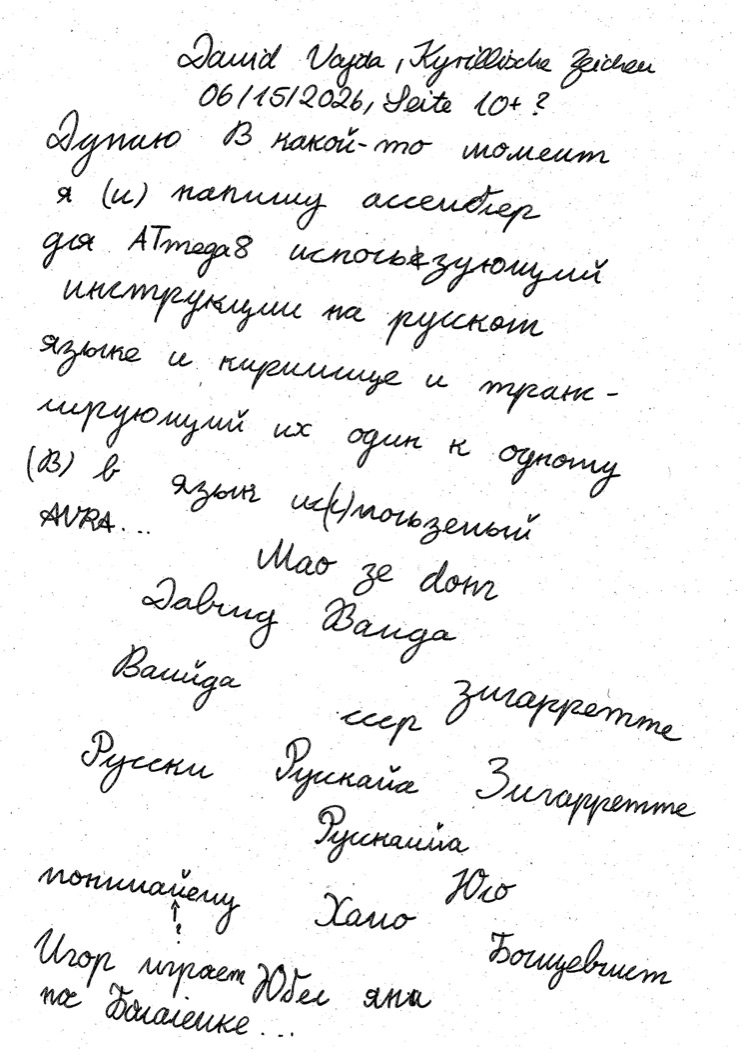 David Vajda, Kyrillische Zeichen
06/15/2026, Seite 10+?
Думаю В какой-то момент
я (и) напишу ассемблер
для ATmega8 использующий
инструкции на русском
языке и кириллице и транс-
лирующий их один к одному
(В) в язык ис(с)пользеный
AVRA...
Мао зе донг
Давид Ваида
Ваийда
зигарретте
ссср
Русски Рускайа Зигарретте
Рускаийа
понимайешу
↑
?
Юго
Хало
Болщевист
Игор играет Юбел яна
на Балалеике...